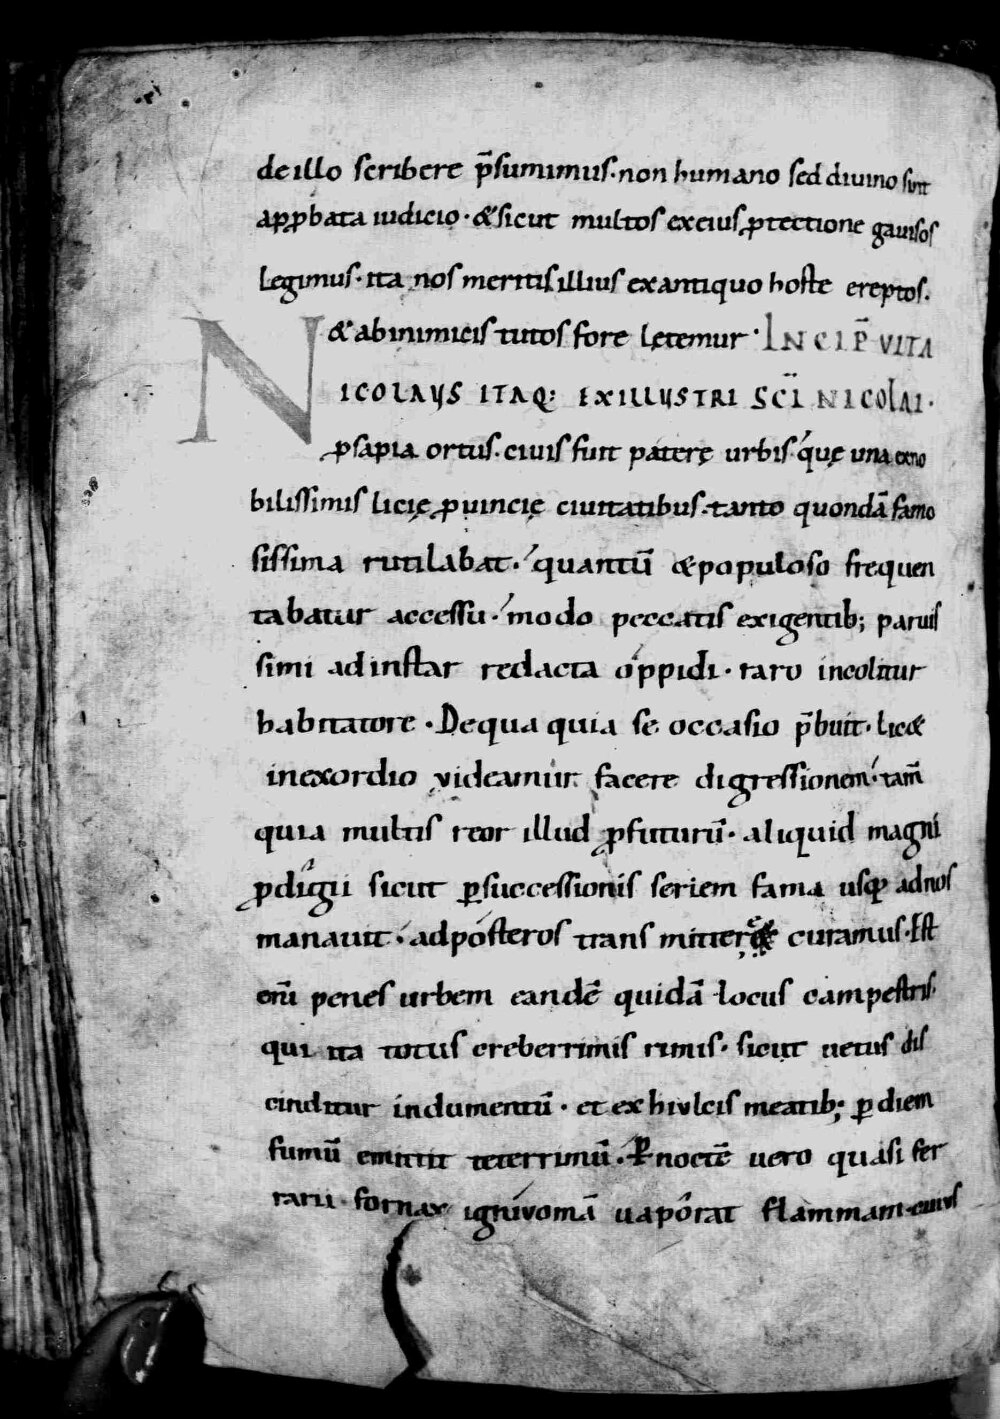 de illo scribere p̄sumimus· non humano sed diuino sint
apꝓbata iudicio· &sicut multos ex eius ꝓtectione gauisos
legimus· ita nos meritis illius ex antiquo hoste ereptos·
& ab inimicis tutos fore lętemur· INCIP̄ VITA
NICOLAUS ITAQ: EX ILLUSTRI SC̄I NICOLAI·
ꝓsapia ortus· ciuis fuit paterę urbis· quę una ex no
bilissimis licię ꝓuincię ciuitatibus· tanto quondā famo
sissima rutilabat· quantū & populoso frequen
tabatur accessu· modo peccatis exigentib; paruis
simi ad instar redacta oppidi· raro incolitur
habitatore· De qua quia se occasio p̄buit· lic&
in exordio videamur facere digressionem· tam̄
quia multis reor illud ꝓfuturū· aliquid magni
ꝓdigii sicut ꝑ successionis seriem fama usq; ad nos
manauit· ad posteros transmittere curamus· Est
eni̅ penes urbem eandē quidā locus campestris·
qui ita totus creberrimis rimis· sicut uetus dis
cinditur indumentū· et ex hiulcis meatib; ꝑ diem
fumū emittit teterrimū· Ꝑ noctē uero quasi fer
rarii fornax ignivomā uaporat flammam· cuius